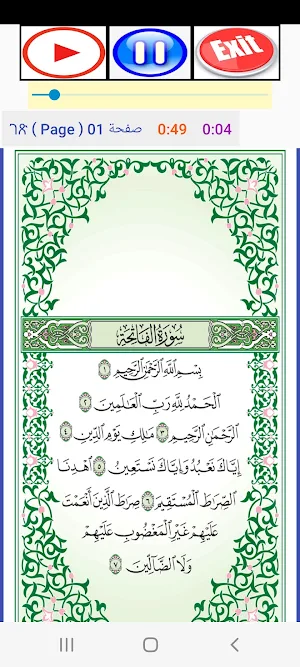 Exit
ገጽ ( Page ) 01 صفحة 0:49 0:04
سُورَةُ الفَاتِحَةِ
بِسْمِ اللَّهِ الرَّحْمَٰنِ الرَّحِيمِ ١
الْحَمْدُ لِلَّهِ رَبِّ الْعَالَمِينَ ٢
الرَّحْمَٰنِ الرَّحِيمِ ٣ مَالِكِ يَوْمِ الدِّينِ ٤
إِيَّاكَ نَعْبُدُ وَإِيَّاكَ نَسْتَعِينُ ٥ اهْدِنَا
الصِّرَاطَ الْمُسْتَقِيمَ ٦ صِرَاطَ الَّذِينَ أَنْعَمْتَ
عَلَيْهِمْ غَيْرِ الْمَغْضُوبِ عَلَيْهِمْ
وَلَا الضَّالِّينَ ٧